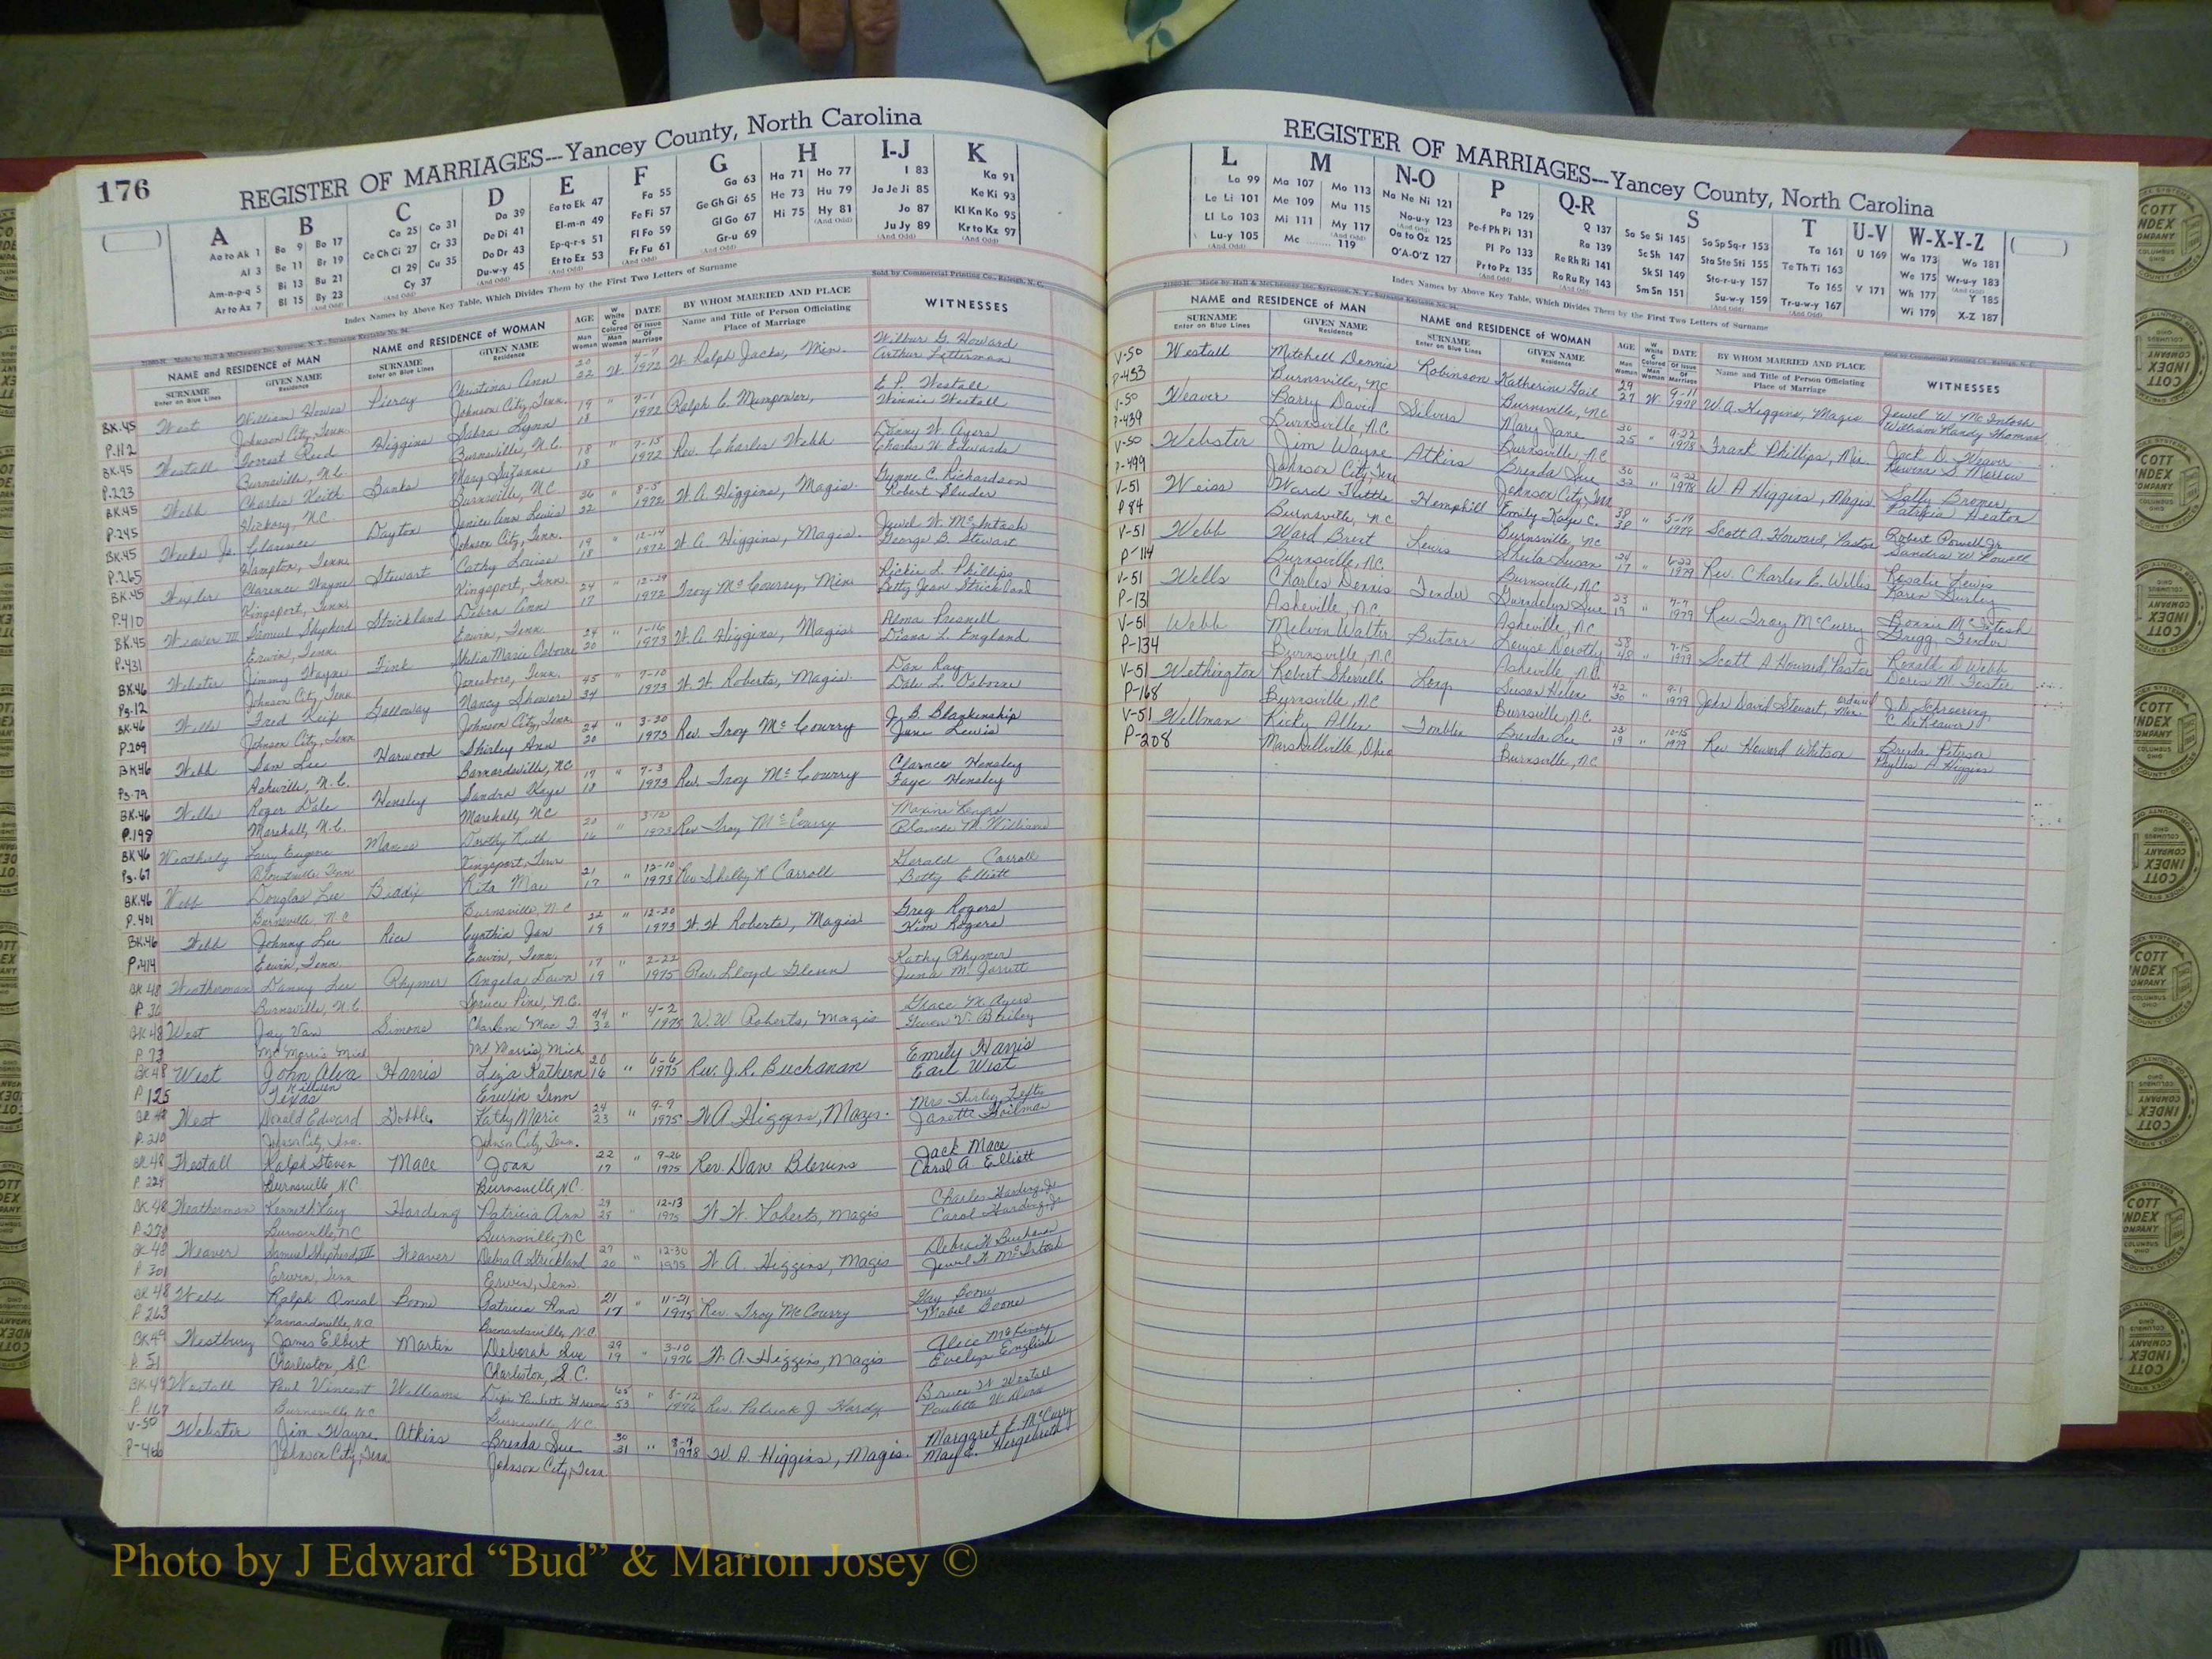 176
REGISTER OF MARRIAGES---Yancey County, North Carolina
A B C D E F G H I-J K
Aa to Ak 1
Al 3
Am-n-p-q 5
Ar to Az 7
Ba 9 Bo 17
Be 11 Br 19
Bi 13 Bu 21
Bl 15 By 23
Ca 25 Co 31
Ce Ch Ci 27 Cr 33
Cl 29 Cu 35
Cy 37
Da 39
De Di 41
Do Dr 43
Du-w-y 45
Ea to Ek 47
El-m-n 49
Ep-q-r-s 51
Et to Ez 53
Fa 55
Fe Fi 57
Fl Fo 59
Fr Fu 61
Ga 63
Ge Gh Gi 65
Gl Go 67
Gr-u 69
Ha 71 Ho 77
He 73 Hu 79
Hi 75 Hy 81
I 83
Ja Je Ji 85
Jo 87
Ju Jy 89
Ka 91
Ke Ki 93
Kl Kn Ko 95
Kr to Kz 97
Index Names by Above Key Table, Which Divides Them by the First Two Letters of Surname
Sold by Commercial Printing Co., Raleigh, N. C.
NAME and RESIDENCE of MAN NAME and RESIDENCE of WOMAN AGE DATE BY WHOM MARRIED AND PLACE WITNESSES
SURNAME GIVEN NAME SURNAME GIVEN NAME Name and Title of Person Officiating
Enter on Blue Lines Residence Enter on Blue Lines Residence Place of Marriage
BK.45 West William Howes Piercy Christina Ann 20 22 W 4-7 1972 W. Ralph Jacks, Min. Wilbur G. Howard
P.112 Johnson City, Tenn. Johnson City, Tenn. Arthur Letterman
BK.45 Westall Forrest Reed Higgins Sabra Lynn 19 18 " 7-1 1972 Ralph C. Mumpower, E. P. Westall
P.223 Burnsville, N.C. Burnsville, N.C. Winnie Westall
BK.45 Webb Charles Keith Banks Mary Suzanne 18 18 " 7-15 1972 Rev. Charles Webb Danny W. Ayers
P.245 Hickory, N.C. Burnsville, N.C. Charles W. Edwards
BK.45 Weeks Jr. Clarence Dayton Janice Ann Lewis 36 22 " 8-5 1972 W. A. Higgins, Magis. Gynne C. Richardson
P.265 Hampton, Tenn. Johnson City, Tenn. Robert Sluder
BK.45 Wexler Clarence Wayne Stewart Cathy Louise 19 18 " 12-14 1972 W. A. Higgins, Magis. Jewel W. McIntosh
P.410 Kingsport, Tenn. Kingsport, Tenn. George B. Stewart
BK.45 Weaver III Samuel Shepherd Strickland Debra Ann 24 17 " 12-29 1972 Troy McCourry, Min Rickie L. Phillips
P.431 Erwin, Tenn. Erwin, Tenn. Betty Jean Strickland
BK.46 Webster Jimmy Wayne Fink Shelia Marie Osborne 24 20 " 1-16 1973 W. A. Higgins, Magis. Alena Presnell
Pg-12 Johnson City, Tenn. Jonesboro, Tenn. Diana L. England
BK.46 Wells Fred Reif Galloway Nancy Showers 45 34 " 7-10 1973 W. W. Roberts, Magis. Dan Ray
P.209 Johnson City, Tenn. Johnson City, Tenn. Dale L. Osborne
BK46 Webb Sam Lee Harwood Shirley Ann 24 20 " 3-20 1973 Rev. Troy McCourry J. B. Blankinship
Pg-79 Asheville, N.C. Barnardsville, NC Jane Lewis
BK.46 Wells Roger Dale Hensley Sandra Kaye 17 18 " 7-3 1973 Rev. Troy McCourry Clarence Hensley
P.198 Marshall, N.C. Marshall, NC Faye Hensley
BK46 Weatherly Larry Eugene Dorothy Ruth 16 " 1973 Rev Troy McCourry
Pg.67 Blountville Tenn Kingsport, Tenn
BK.46 Webb Douglas Lee Biddix Rita Mae 21 17 " 12-10 1973 Rev Shelby R Carroll Gerald Carroll
P.401 Burnsville, N.C. Burnsville, N.C. Betty Elliott
BK.46 Webb Johnny Lee Rice Cynthia Jan 22 19 " 12-20 1973 W. W. Roberts, Magis Greg Rogers
P.414 Erwin, Tenn. Erwin, Tenn. Kim Rogers
BK 48 Weatherman Danny Lee Rhymer Angela Dawn 17 19 " 2-22 1975 Rev. Lloyd Glenn Kathy Rhymer
P 36 Burnsville, N.C. Spruce Pine, N.C. June M. Jarrett
BK 48 West Jay Van Simons Charlene Mae F. 44 32 " 4-2 1975 W. W. Roberts, Magis Grace M. Ayers
P 73 Mt Morris Mich Mt Morris, Mich Gwen V. Bailey
BK 48 West John Alva Harris Liza Kathern 20 16 " 6-6 1975 Rev. J. R. Buchanan Emily Harris
P 125 Killeen Texas Erwin Tenn Earl West
BK 48 West Donald Edward Gobble Kathy Marie 24 23 " 9-9 1975 W. A. Higgins, Magis. Mrs. Shirley
P. 210 Johnson City, Tenn. Johnson City, Tenn. Janette Hoilman
BK 48 Westall Ralph Steven Mace Joan 22 17 " 9-26 1975 Rev. Dan Blevins Jack Mace
P. 229 Burnsville N.C. Burnsville N.C. Carol A Elliott
BK 48 Weatherman Kenneth Ray Harding Patricia Ann " 12-13 1975 W. W. Roberts, Magis Charles Harding Jr.
P. 278 Burnsville, NC Burnsville, NC Carol Harding Jr.
BK 48 Weaver Samuel Shepherd, III Weaver Debra A Strickland 27 20 " 12-30 1975 W. A. Higgins, Magis Debra W Buchanan
P 301 Erwin, Tenn Erwin, Tenn. Jewel W. McIntosh
BK 48 Webb Ralph Oneal Boone Patricia Ann 21 17 " 11-21 1975 Rev. Troy McCourry Boone
P. 263 Barnardsville, N.C. Barnardsville, N.C. Mabel Boone
BK49 Westbury James Elbert Martin Deborah Sue 29 19 " 3-10 1976 W. A. Higgins, Magis Alice McKinney
P. 51 Charleston, S.C. Charleston, S.C. Evelyn English
BK.49 Westall Paul Vincent Williams Dixie Paulette 65 53 " 8-12 1976 Rev. Patrick J. Hardy Bruce W Westall
P. 167 Burnsville, N.C. Burnsville N.C. Paulette W.
V-50 Webster Jim Wayne Atkins Brenda Sue 30 31 " 1978 W. A. Higgins, Magis. Margaret E. McCurry
P-466 Johnson City, Tenn Johnson City, Tenn May E. Hergenrath
REGISTER OF MARRIAGES---Yancey County, North Carolina
L M N-O P Q-R S T U-V W-X-Y-Z
La 99
Le Li 101
Ll Lo 103
Lu-y 105
Ma 107 Mo 113
Me 109 Mu 115
Mi 111 My 117
Mc 119
Na Ne Ni 121
No-u-y 123
Oa to Oz 125
O'A-O'Z 127
Pa 129
Pe-f Ph Pi 131
Pl Po 133
Pr to Pz 135
Q 137
Ra 139
Re Rh Ri 141
Ro Ru Ry 143
Sa Se Si 145 So Sp Sq-r 153
Sc Sh 147 Sta Ste Sti 155
Sk Sl 149 Sto-r-u-y 157
Sm Sn 151 Su-w-y 159
Ta 161
Te Th Ti 163
To 165
Tr-u-w-y 167
U 169
V 171
Wa 173 Wo 181
We 175 Wr-u-y 183
Wh 177 Y 185
Wi 179 X-Z 187
Index Names by Above Key Table, Which Divides Them by the First Two Letters of Surname
NAME and RESIDENCE of MAN NAME and RESIDENCE of WOMAN AGE DATE BY WHOM MARRIED AND PLACE WITNESSES
SURNAME GIVEN NAME SURNAME GIVEN NAME Name and Title of Person Officiating
Enter on Blue Lines Residence Enter on Blue Lines Residence Place of Marriage
V-50 Westall Mitchell Dennis Robinson Katherine Gail 29 27 W 9-11 1978 W. A. Higgins, Magis Jewel W. McIntosh
P-453 Burnsville, NC Burnsville, NC William Randy Thomas
V-50 Weaver Barry David Silvers Mary Jane 30 25 " 9-22 1978 Frank Phillips, Min. Jack D. Weaver
P-439 Burnsville, N.C. Burnsville, N.C. Rowena S. Morrow
V-50 Webster Jim Wayne Atkins Brenda Sue 30 32 " 12-22 1978 W A Higgins, Magis Sally Bremer
P-499 Johnson City, Tenn Johnson City, Tenn Patricia Heaton
V-51 Weiss Ward Tuttle Hemphill Emily Kaye C. 38 38 " 5-19 1979 Scott A. Howard, Pastor Robert Powell Jr
P 84 Burnsville, NC Burnsville, NC Sandra W Powell
V-51 Webb Ward Brent Lewis Sheila Susan 24 17 " 6-22 1979 Rev. Charles C. Willis Rosalie Lewis
P-114 Burnsville, NC. Burnsville, NC Karen Gurley
V-51 Wells Charles Dennis Fender Gwendolyn Sue 23 19 " 7-7 1979 Rev. Troy McCurry Bonnie McIntosh
P-131 Asheville, N.C Asheville, NC Gregg Fender
V-51 Webb Melvin Walter Butner Louise Dorothy 58 48 " 7-15 1979 Scott A Howard, Pastor Ronald D Webb
P-134 Burnsville, N.C. Asheville, N.C. Doris M. Fester
V-51 Wethington Robert Sherrell Long Susan Helen 42 30 " 9-1 1979 John David Stewart, Ordained Min. J. D. Schroering
P-168 Burnsville, N.C Burnsville, N.C.
V-51 Wellman Ricky Allen Tomblin Brenda Lee 23 19 " 12-15 1979 Rev Howard Whitson Brenda Peterson
P-208 Marshallville, Ohio Burnsville, NC Phyllis A Higgins
COTT INDEX COMPANY COLUMBUS OHIO
Photo by J Edward “Bud” & Marion Josey ©